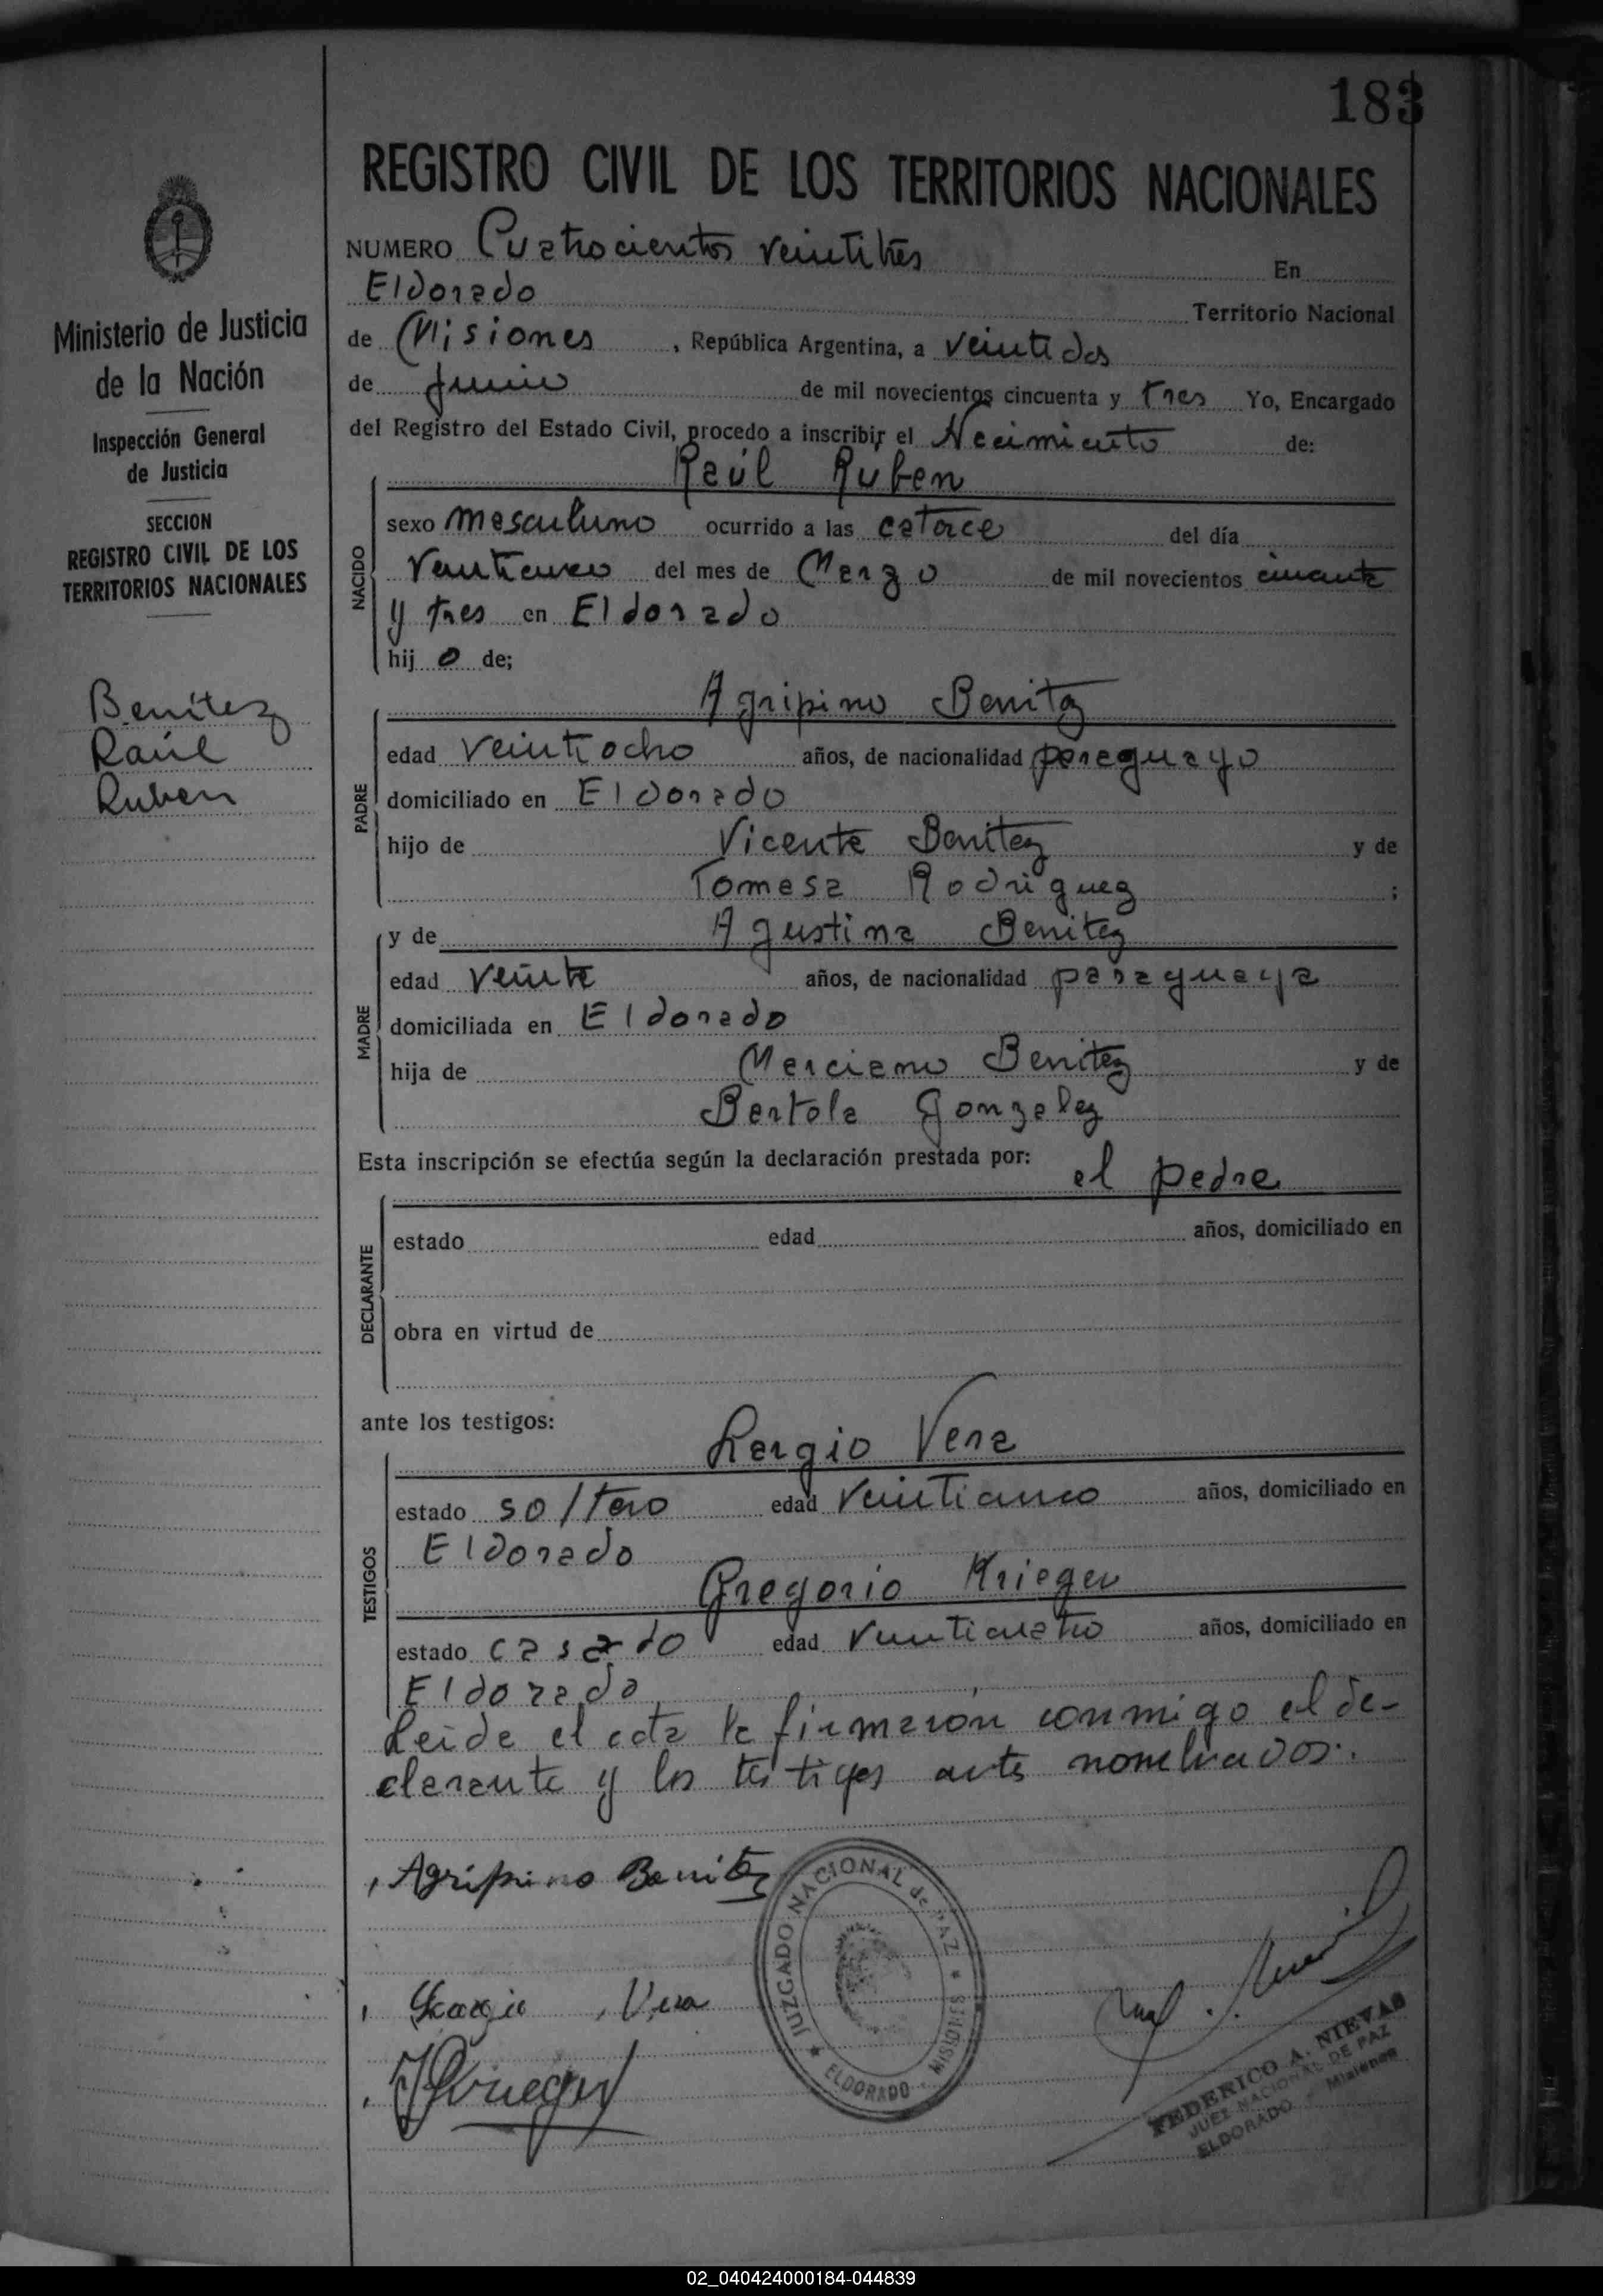 183
REGISTRO CIVIL DE LOS TERRITORIOS NACIONALES
NUMERO Cuatrocientos veintitres En
Eldorado Territorio Nacional
de Misiones, República Argentina, a veintidos
de Junio de mil novecientos cincuenta y tres Yo, Encargado
del Registro del Estado Civil, procedo a inscribir el Nacimiento de:
Raúl Ruben
NACIDO
sexo masculino ocurrido a las catorce del día
veinticinco del mes de Marzo de mil novecientos cincuenta
y tres en Eldorado
hij o de;
Agripino Benitez
PADRE
edad veintiocho años, de nacionalidad paraguayo
domiciliado en Eldorado
hijo de Vicente Benitez y de
Tomasa Rodriguez ;
MADRE
y de Agustina Benitez
edad veinte años, de nacionalidad paraguaya
domiciliada en Eldorado
hija de Marciano Benitez y de
Bertola Gonzalez
Esta inscripción se efectúa según la declaración prestada por:
el padre
DECLARANTE
estado edad años, domiciliado en
obra en virtud de
ante los testigos:
TESTIGOS
Sergio Vera
estado soltero edad veinticinco años, domiciliado en
Eldorado
Gregorio Krieger
estado casado edad veinticuatro años, domiciliado en
Eldorado
Leida el acta la firmaron conmigo el de-
clarante y los testigos antes nombrados.
Agripino Benitez
Vera
JUZGADO NACIONAL de PAZ
ELDORADO - MISIONES
FEDERICO A. NIEVAS
JUEZ NACIONAL DE PAZ
ELDORADO - Misiones
Ministerio de Justicia
de la Nación
Inspección General
de Justicia
SECCION
REGISTRO CIVIL DE LOS
TERRITORIOS NACIONALES
Benítez
Raúl
Ruben
02_040424000184-044839